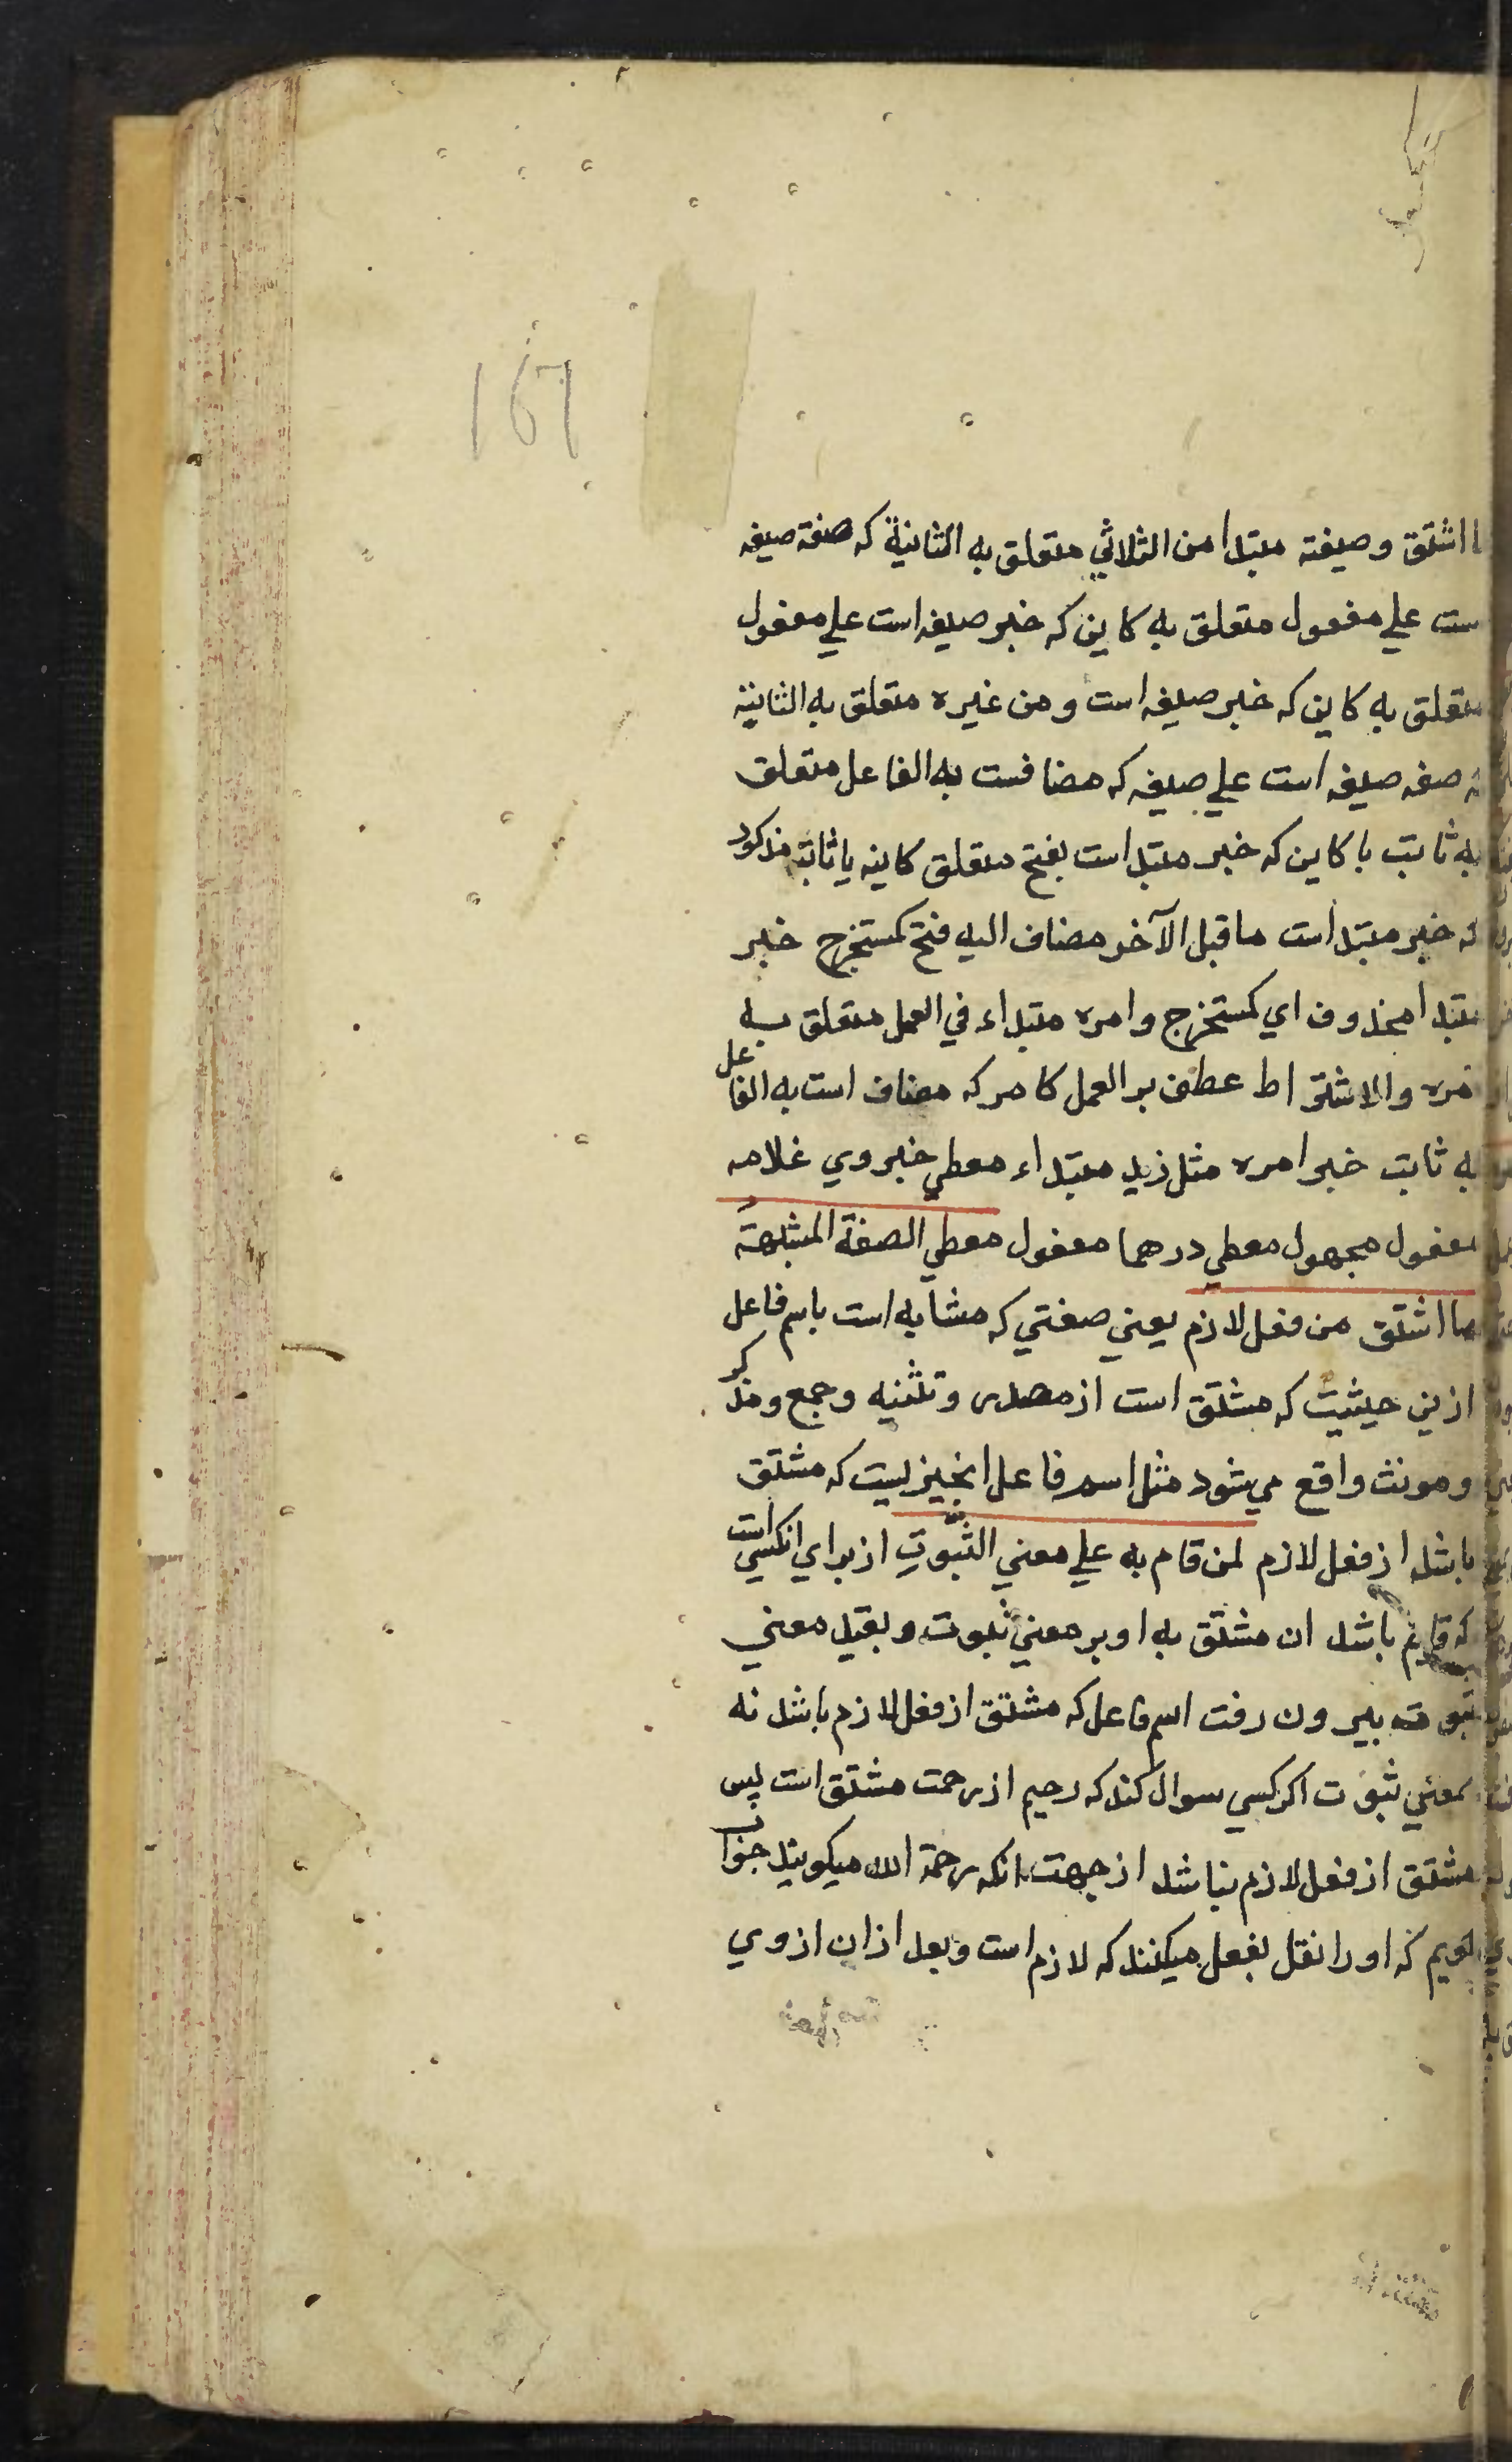 ۱۶۱
ما اشتق وصیغته مبتدا من الثلاثي متعلق به الثانیة که صفة صیغه
ست علي مفعول متعلق به کاین که خبر صیغه است علي مفعول
متعلق به کاین که خبر صیغه است و من غیره متعلق به الثانیة
که صفه صیغه است علي صیغه که مضافست به الفاعل متعلق
به ثابت با کاین که خبر مبتدا است بفتح متعلق کاینه یا ثابته مذکور
که خبر مبتدا است ماقبل الآخر مضاف الیه فتح کمستخرج خبر
مبتدا محذوف اي کمستخرج وامره مبتداء في العمل متعلق به
امره والاشتراط عطف بر العمل کامر که مضاف است به الفاعل
به ثابت خبر امره مثل زید مبتداء معطي خبر وي غلامه
مفعول مجهول معطي درهما مفعول معطي الصفة المشبهة
ما اشتق من فعل لازم یعني صفتي که مشابه است باسم فاعل
ازین حیثیت که مشتق است از مصدر و تثنیه و جمع و مذکر
و مونث واقع مي شود مثل اسم فاعل انچیزیست که مشتق
باشد از فعل لازم لمن قام به علي معني الثبوت از براي انکسي است
که قایم باشد ان مشتق به او بر معني ثبوت و بقید معني
ثبوت بیرون رفت اسم فاعل که مشتق از فعل لازم باشد نه
بمعني ثبوت اکر کسي سوال کند که رحیم از رحمت مشتق است پس
مشتق از فعل لازم نباشد از جهت انکه رحمة الله میکویند جواب
کویم که او را نقل بفعل میکنند که لازم است و بعد ازان از وي